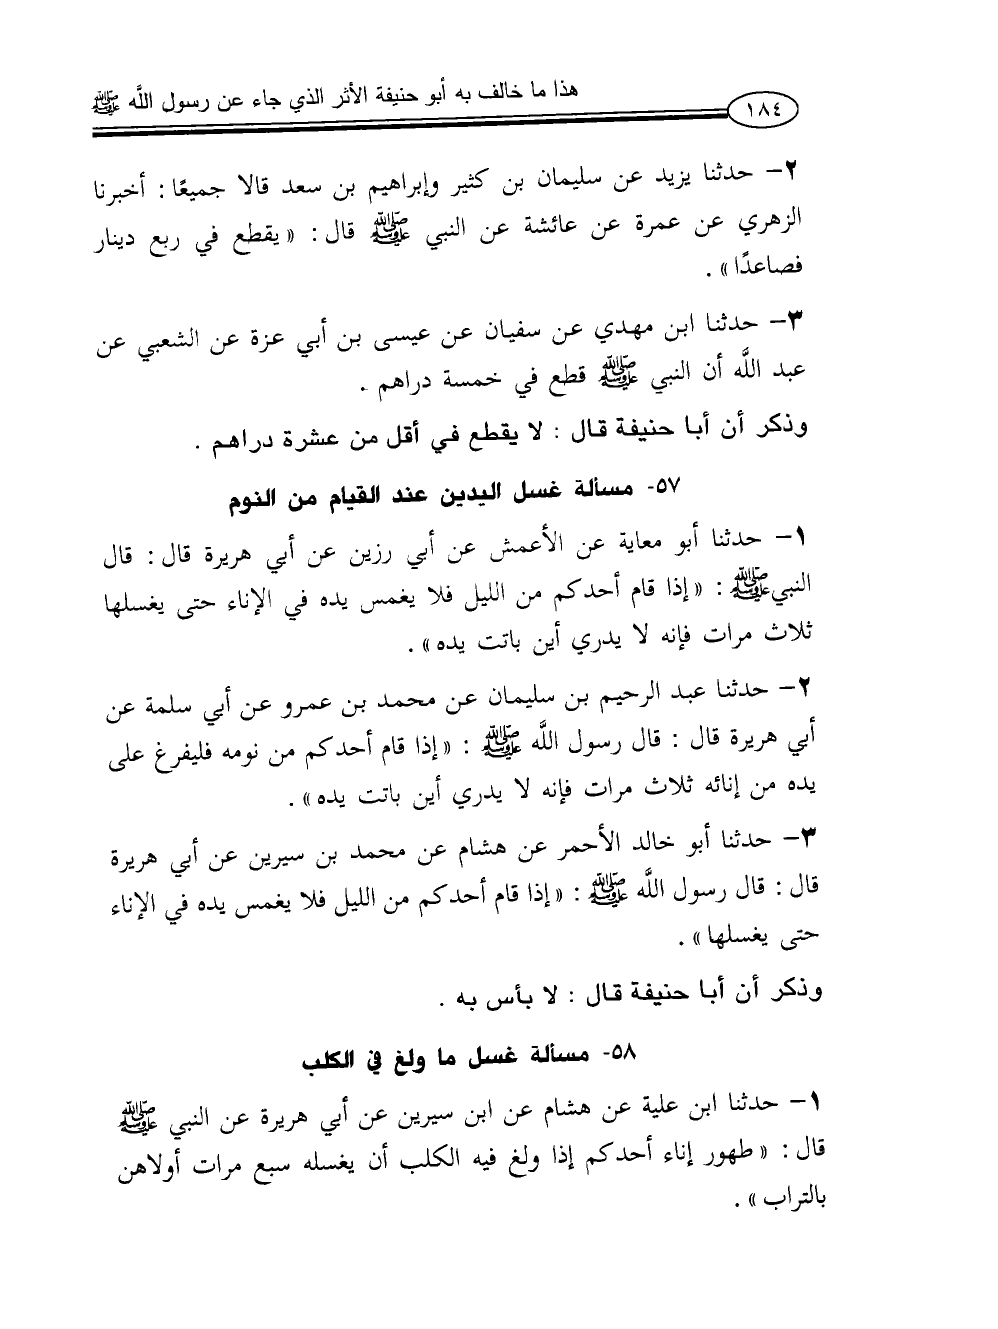 ١٨٤ هذا ما خالف به أبو حنيفة الأثر الذي جاء عن رسول اللَّه ﷺ
٢- حدثنا يزيد عن سليمان بن كثير وإبراهيم بن سعد قالا جميعًا : أخبرنا
الزهري عن عمرة عن عائشة عن النبي ﷺ قال : « يقطع في ربع دينار
فصاعدًا » .
٣- حدثنا ابن مهدي عن سفيان عن عيسى بن أبي عزة عن الشعبي عن
عبد اللَّه أن النبي ﷺ قطع في خمسة دراهم .
وذكر أن أبا حنيفة قال : لا يقطع في أقل من عشرة دراهم .
٥٧- مسألة غسل اليدين عند القيام من النوم
١- حدثنا أبو معاية عن الأعمش عن أبي رزين عن أبي هريرة قال : قال
النبي ﷺ : « إذا قام أحدكم من الليل فلا يغمس يده في الإناء حتى يغسلها
ثلاث مرات فإنه لا يدري أين باتت يده » .
٢- حدثنا عبد الرحيم بن سليمان عن محمد بن عمرو عن أبي سلمة عن
أبي هريرة قال : قال رسول اللَّه ﷺ : « إذا قام أحدكم من نومه فليفرغ على
يده من إنائه ثلاث مرات فإنه لا يدري أين باتت يده » .
٣- حدثنا أبو خالد الأحمر عن هشام عن محمد بن سيرين عن أبي هريرة
قال : قال رسول اللَّه ﷺ : « إذا قام أحدكم من الليل فلا يغمس يده في الإناء
حتى يغسلها » .
وذكر أن أبا حنيفة قال : لا بأس به .
٥٨- مسألة غسل ما ولغ في الكلب
١- حدثنا ابن علية عن هشام عن ابن سيرين عن أبي هريرة عن النبي ﷺ
قال : « طهور إناء أحدكم إذا ولغ فيه الكلب أن يغسله سبع مرات أولاهن
بالتراب » .